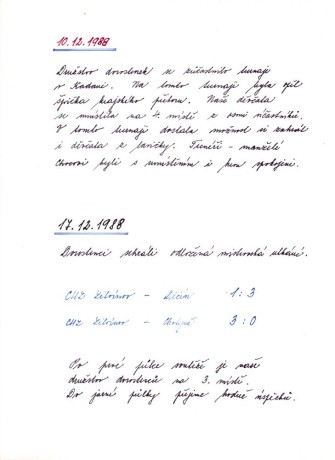 10.12.1988
Družstvo dorostenek se zúčastnilo turnaje
v Kadani. Na tomto turnaji byla opět
špička krajského přeboru. Naše děvčata
se umístila na 4. místě z osmi účastníků.
V tomto turnaji dostala možnost si zahrát
i děvčata z lavičky. Trenéři - manželé
byli s umístěním i hrou spokojeni.
17.12.1988
Dorostenci sehráli odložená mistrovská utkání.
CHZ Litvínov - Děčín 1:3
CHZ Litvínov - 3:0
Po prvé půlce soutěže je naše
družstvo dorostenců na 3. místě.
Do jarní půlky přejeme hodně úspěchů.